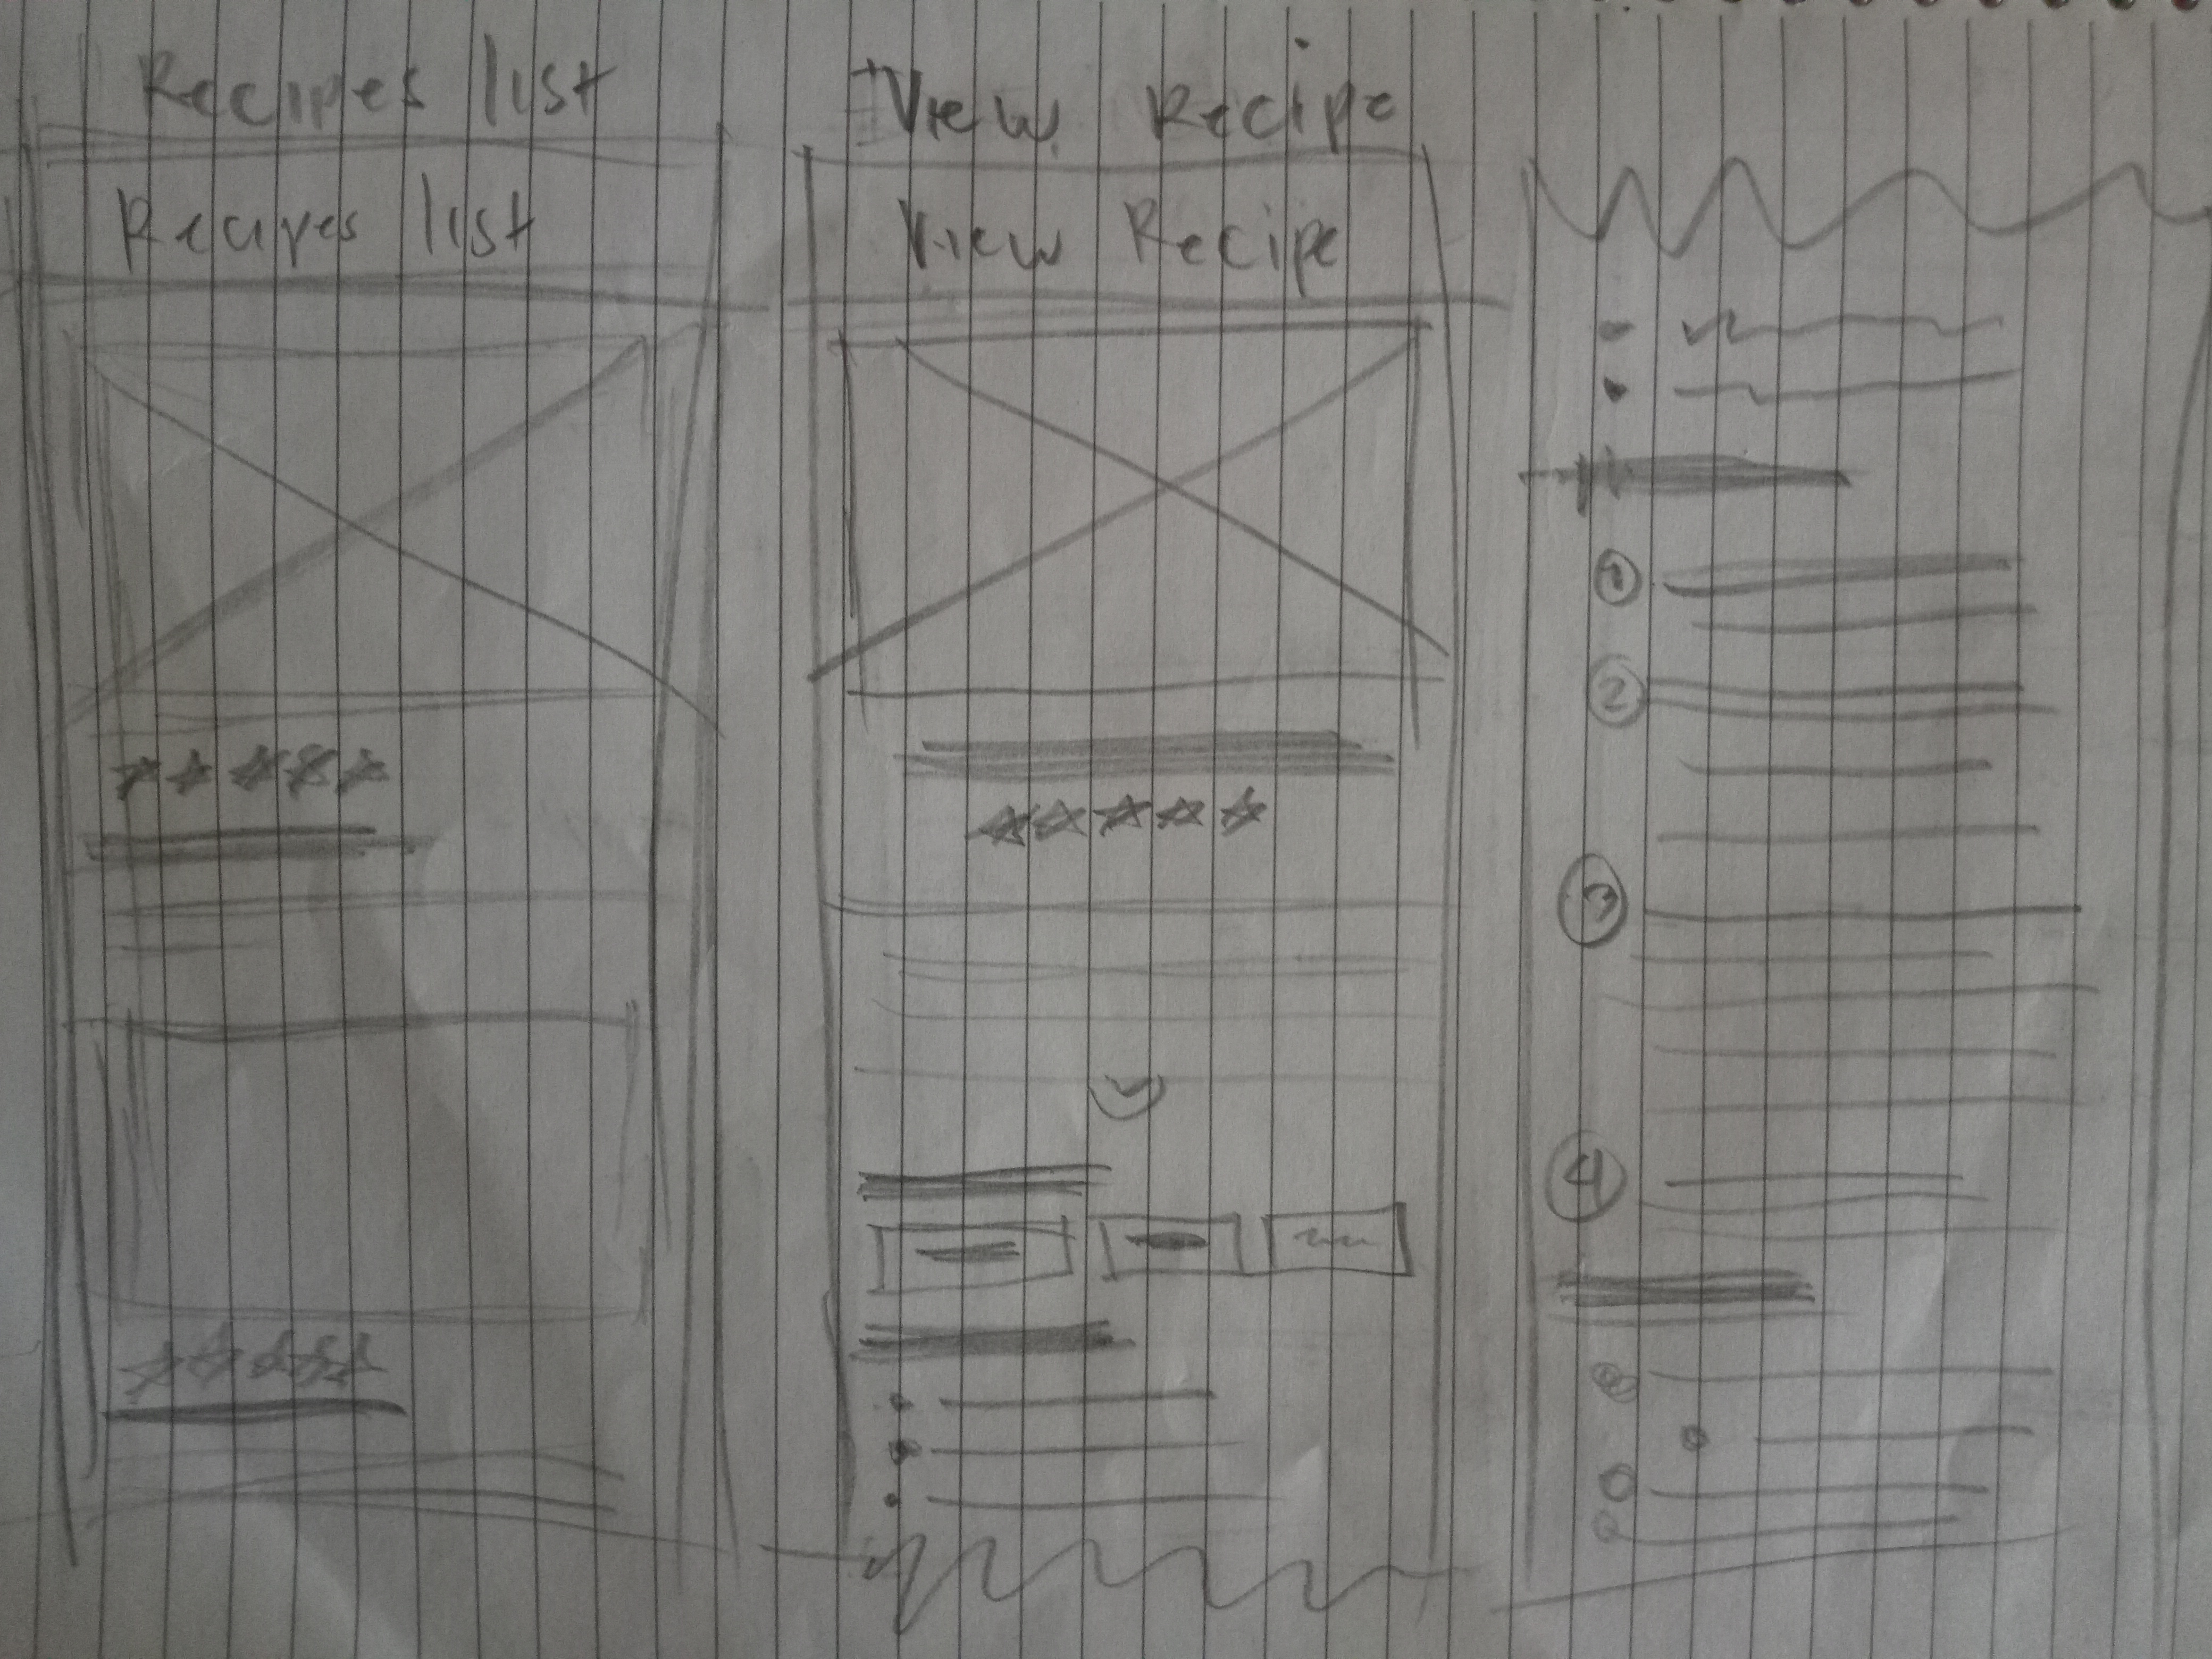 Recipes list
Recipes list
View Recipe
View Recipe
1
2
3
4